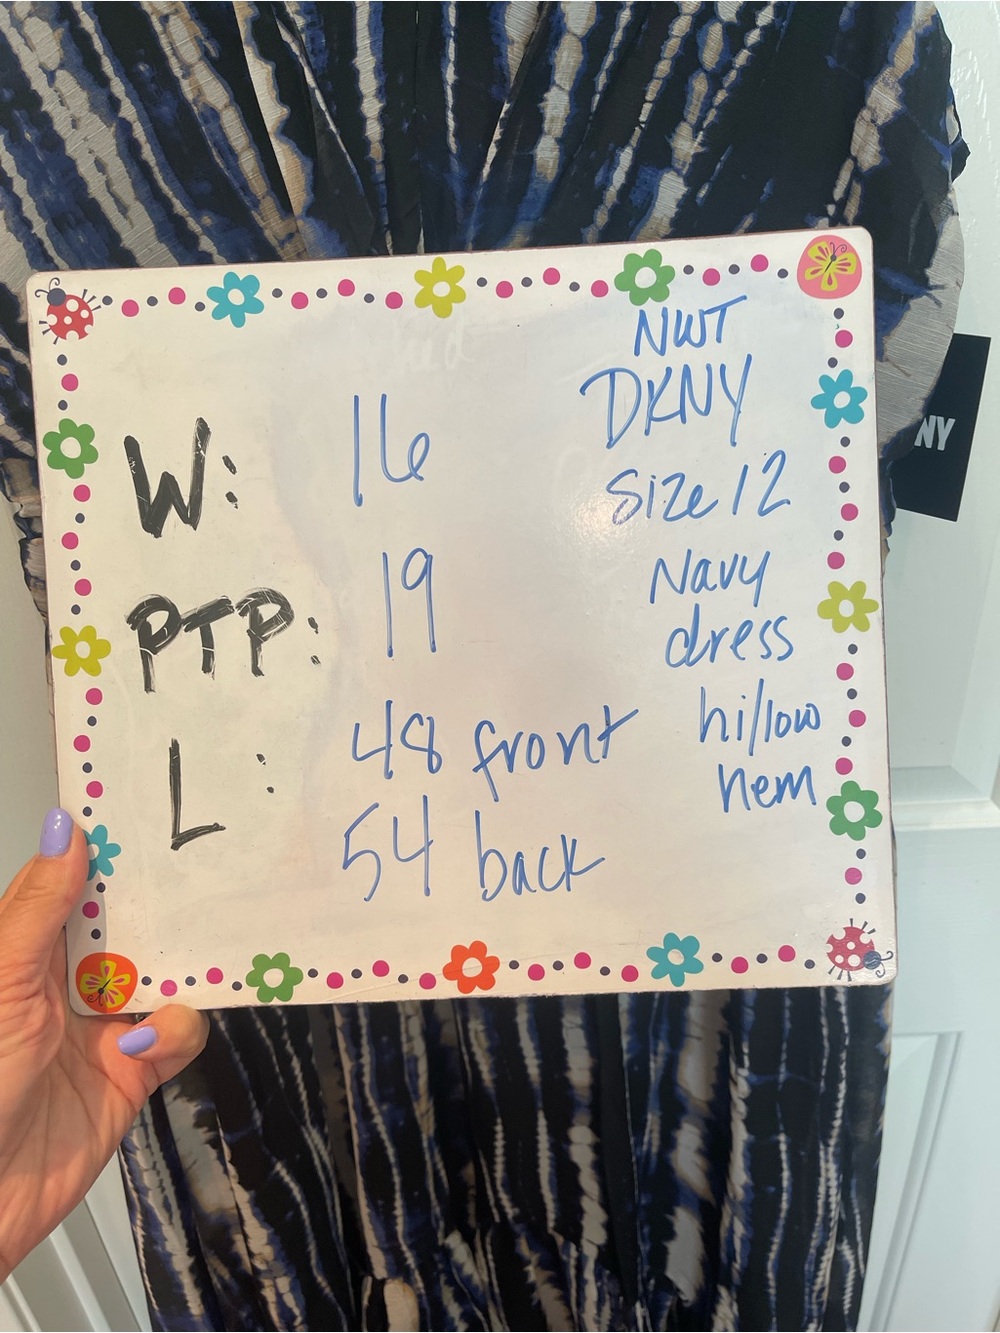 NWT
DKNY
Size 12
Navy
dress
hi/low
hem
W: 16
PTP: 19
L: 48 front
54 back
NY